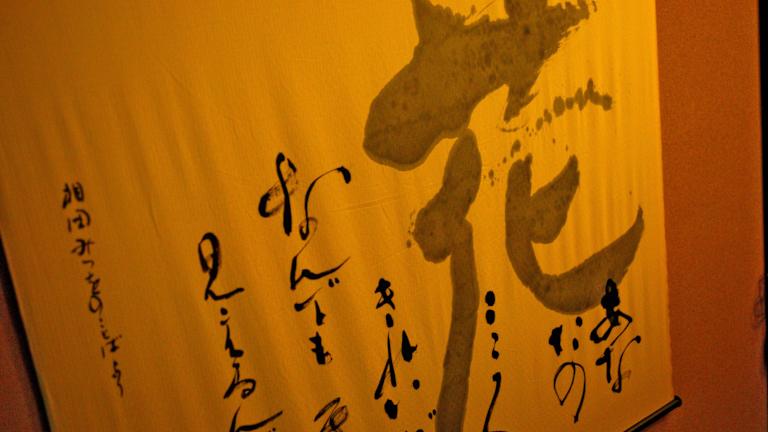 花
あな
たの
こころ
きれいだ
なんでも
見えるん
相田みつをのことばより